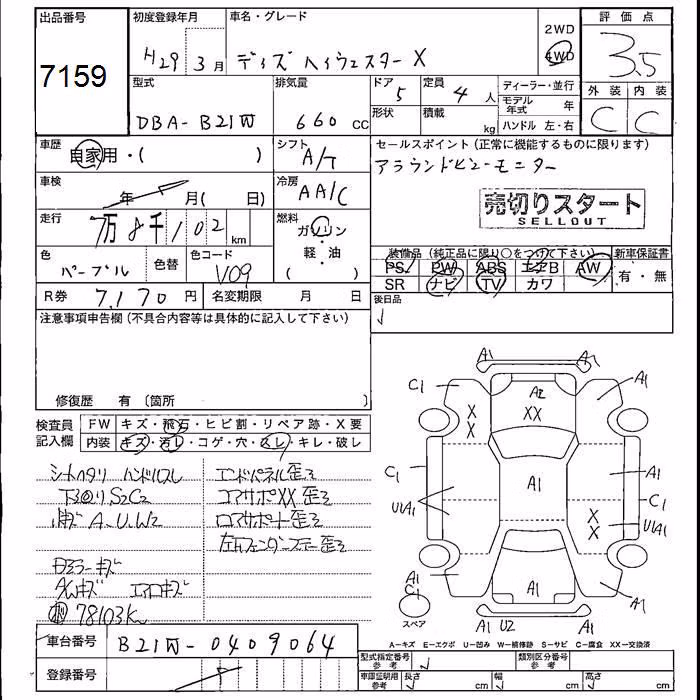 出品番号
7159
初度登録年月
H29年3月
車名・グレード
デイズ ハイウェスター X
2WD
4WD
評価点
3.5
型式
DBA-B21W
排気量
660 cc
ドア
5
定員
4人
形状
積載
kg
ディーラー・並行
モデル年式 年
ハンドル 左・右
外装
内装
C
C
車歴
自家用・( )
シフト
A/T
セールスポイント (正常に機能するものに限ります)
アラウンドビューモニター
車検
年 月( 日)
冷房
AA/C
売切りスタート
SELLOUT
走行
7万8千102 km
燃料
ガソリン
・
軽・油
( )
色
パープル
色替
色コード
V09
装備品 (純正品に限り○をつけて下さい)
新車保証書
PS PW ABS エアB AW
SR ナビ TV カワ
有・無
R券
7,170円
名変期限 月 日
後日品
注意事項申告欄 (不具合内容等は具体的に記入して下さい)
修復歴 有 〔箇所 〕
検査員
記入欄
FW
キズ・飛石・ヒビ割・リペア跡・X要
内装
キズ・汚レ・コゲ・穴・スレ・キレ・破レ
シートヘタリ ハンドルスレ
下回りS2C2
A.U.W2
エンドパネル歪ミ
コアサポXX歪ミ
ロアサポート歪ミ
左右フェンダーステー歪ミ
ミラーキズ
エアロキズ
78103km
A1
A1
C1
C1
A1
A1
A2
XX
X
X
C1
A1
A1
C1
U1A1
X
X
U1A1
A1
C1
A1
A1
A1
U2
スペア
A-キズ E-エクボ U-凹み W-補修跡 S-サビ C-腐食 XX-交換済
車台番号
B21W-0409064
登録番号
型式指定番号
参考
類別区分番号
参考
車庫証明用
参考
長さ cm
幅 cm
高さ cm